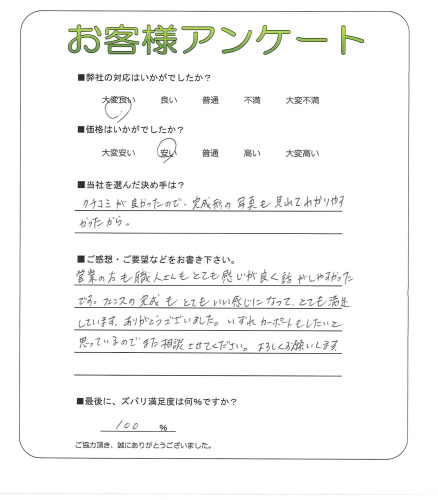 お客様アンケート
■弊社の対応はいかがでしたか？
大変良い 良い 普通 不満 大変不満
■価格はいかがでしたか？
大変安い 安い 普通 高い 大変高い
■当社を選んだ決め手は？
クチコミが良かったので。完成形の写真も見れてわかりやす
かったから。
■ご感想・ご要望などをお書き下さい。
営業の方も職人さんもとても感じが良く話がしやすかった
です。フェンスの完成もとてもいい感じになって、とても満足
しています。ありがとうございました。いずれカーポートもしたいと
思っているのでまた相談させてください。よろしくお願いします
■最後に、ズバリ満足度は何％ですか？
100 ％
ご協力頂き、誠にありがとうございました。